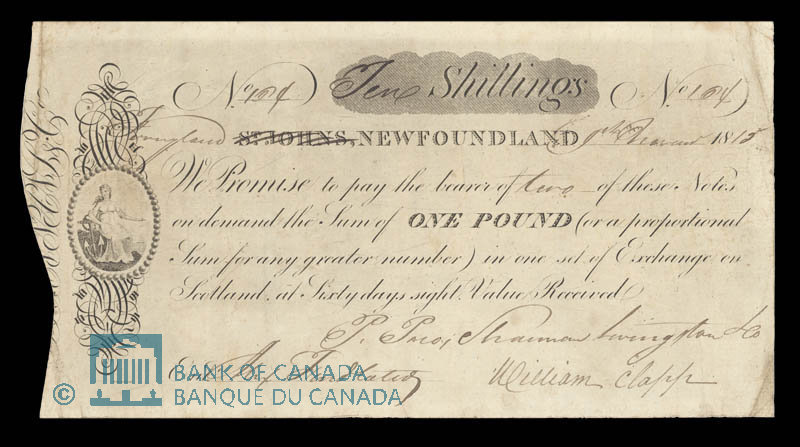 No 104 Ten Shillings No 104
St. JOHNS, NEWFOUNDLAND 1815
We Promise to pay the bearer of two of these Notes
on demand the Sum of ONE POUND (or a proportional
Sum for any greater number) in one set of Exchange on
Scotland, at Sixty days sight. Value Received
P. Pro; Livingston & Co
Ent William Clapp
© BANK OF CANADA
BANQUE DU CANADA